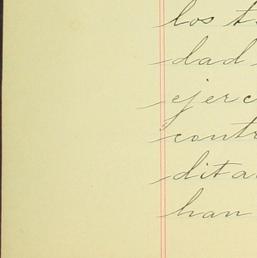 los t
dad
ejerc
contr
dita
han